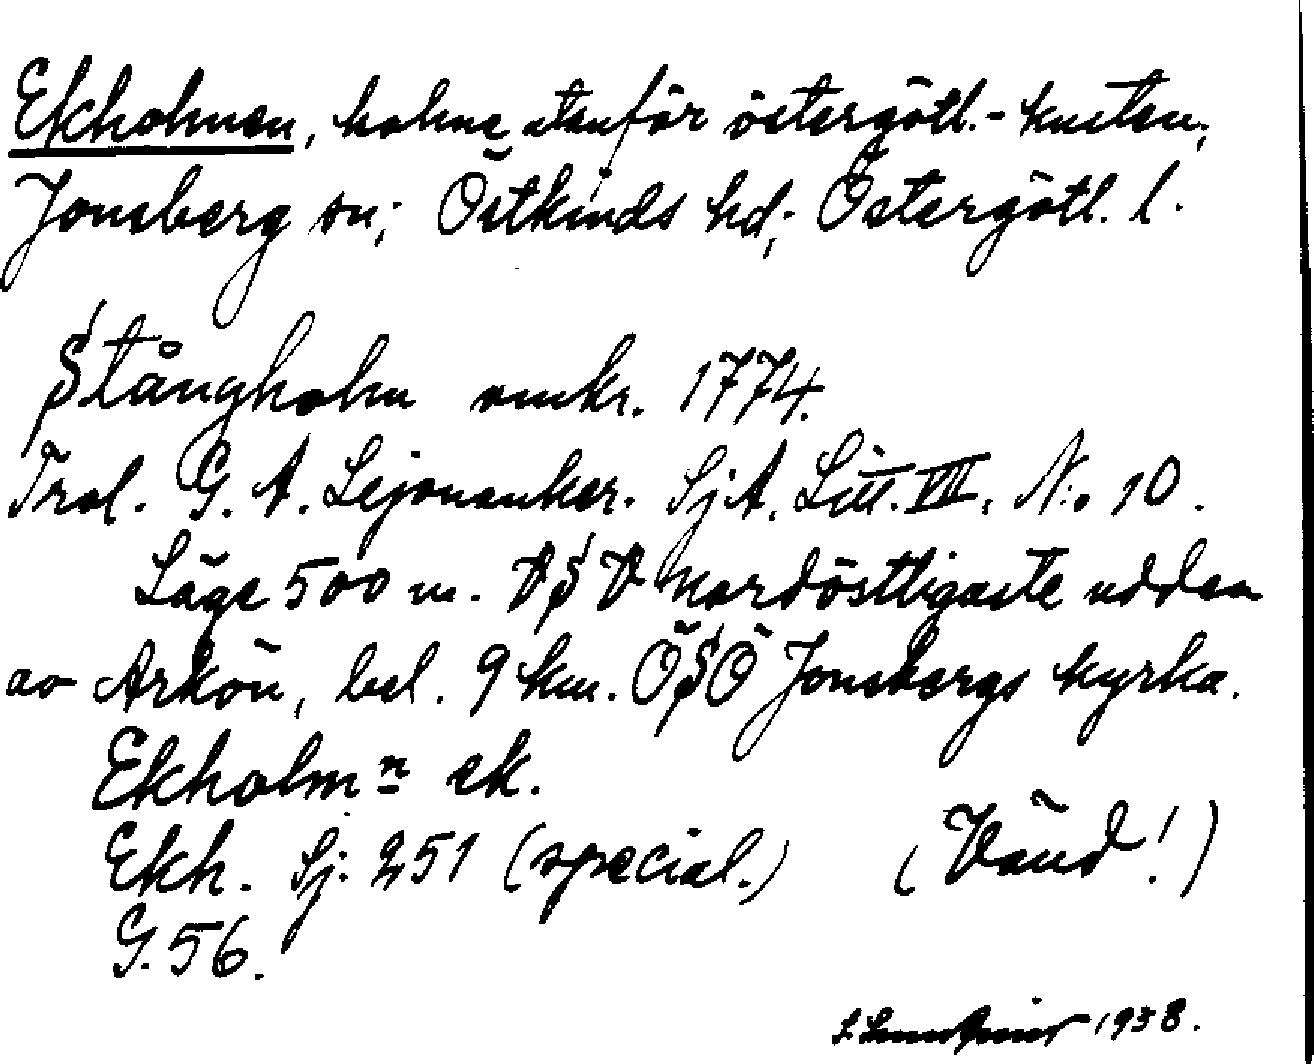 Ekholmen, holme utanför östergötl.-kusten,
Jonsberg sn; Östkinds hd; Östergötl. l.
Stångholm omkr. 1774.
Trol. G. A. Lejonanker. SjA. Litt. VII. N:o 10.
Läge 500 m. VSV nordöstligaste udden
av Arkön, bel. 9 km. ÖSÖ Jonsbergs kyrka.
Ekholmn ek.
Ekh. Sj. 251 (special.) (Vänd!)
G. 56.
1938.